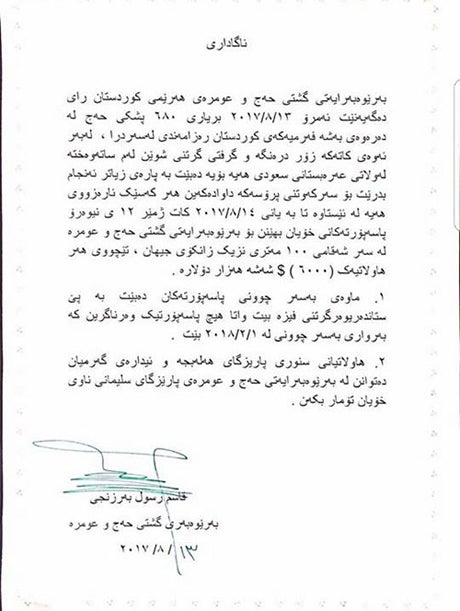 ئاگاداری
بەڕێوەبەرایەتی گشتی حەج و عومرەی هەرێمی کوردستان رای
دەگەیەنێت ئەمرۆ ٢٠١٧/٨/١٣ بریاری ٦٨٠ پشکی حەج لە
دەرەوەی بەشە فەرمیەکەی کوردستان رەزامەندی لەسەردرا ، لەبەر
ئەوەی کاتەکە زۆر درەنگە و گرفتی گرتنی شوێن لەم ساتەوەختە
لەولاتی عەرەبستانی سعودی هەیە بۆیە دەبێت بە پارەی زیاتر ئەنجام
بدرێت بۆ سەرکەوتنی پرۆسەکە داوادەکەین هەر کەسێک ئارەزووی
هەیە لە ئێستاوە تا بە یانی ٢٠١٧/٨/١٤ کات ژمێر ١٢ ی نیوەرۆ
پاسپۆرتەکانی خۆیان بهێنن بۆ بەرێوەبەرایەتی گشتی حەج و عومرە
لە سەر شەقامی ١٠٠ مەتری نزیک زانکۆی جیهان ، تێچووی هەر
هاولاتیەک (٦٠٠٠ ) $ شەشە هەزار دۆلارە .
١. ماوەی بەسەر چوونی پاسپۆرتەکان دەبێت بە پێ
ستاندەریوەرگرتنی فیزە بیت واتا هیچ پاسپۆرتیک وەرناگرین کە
بەرواری بەسەر چوونی لە ٢٠١٨/٢/١ بێت .
٢. هاولاتیانی سنوری پارێزگای هەلەبجە و ئیدارەی گەرمیان
دەتوانن لە بەرێوەبەرایەتی حەج و عومرەی پارێزگای سلیمانی ناوی
خۆیان تۆمار بکەن .
قاسم رسول بەرزنجی
بەرێوەبەری گشتی حەج و عومرە
٢٠١٧ /٨ /١٣